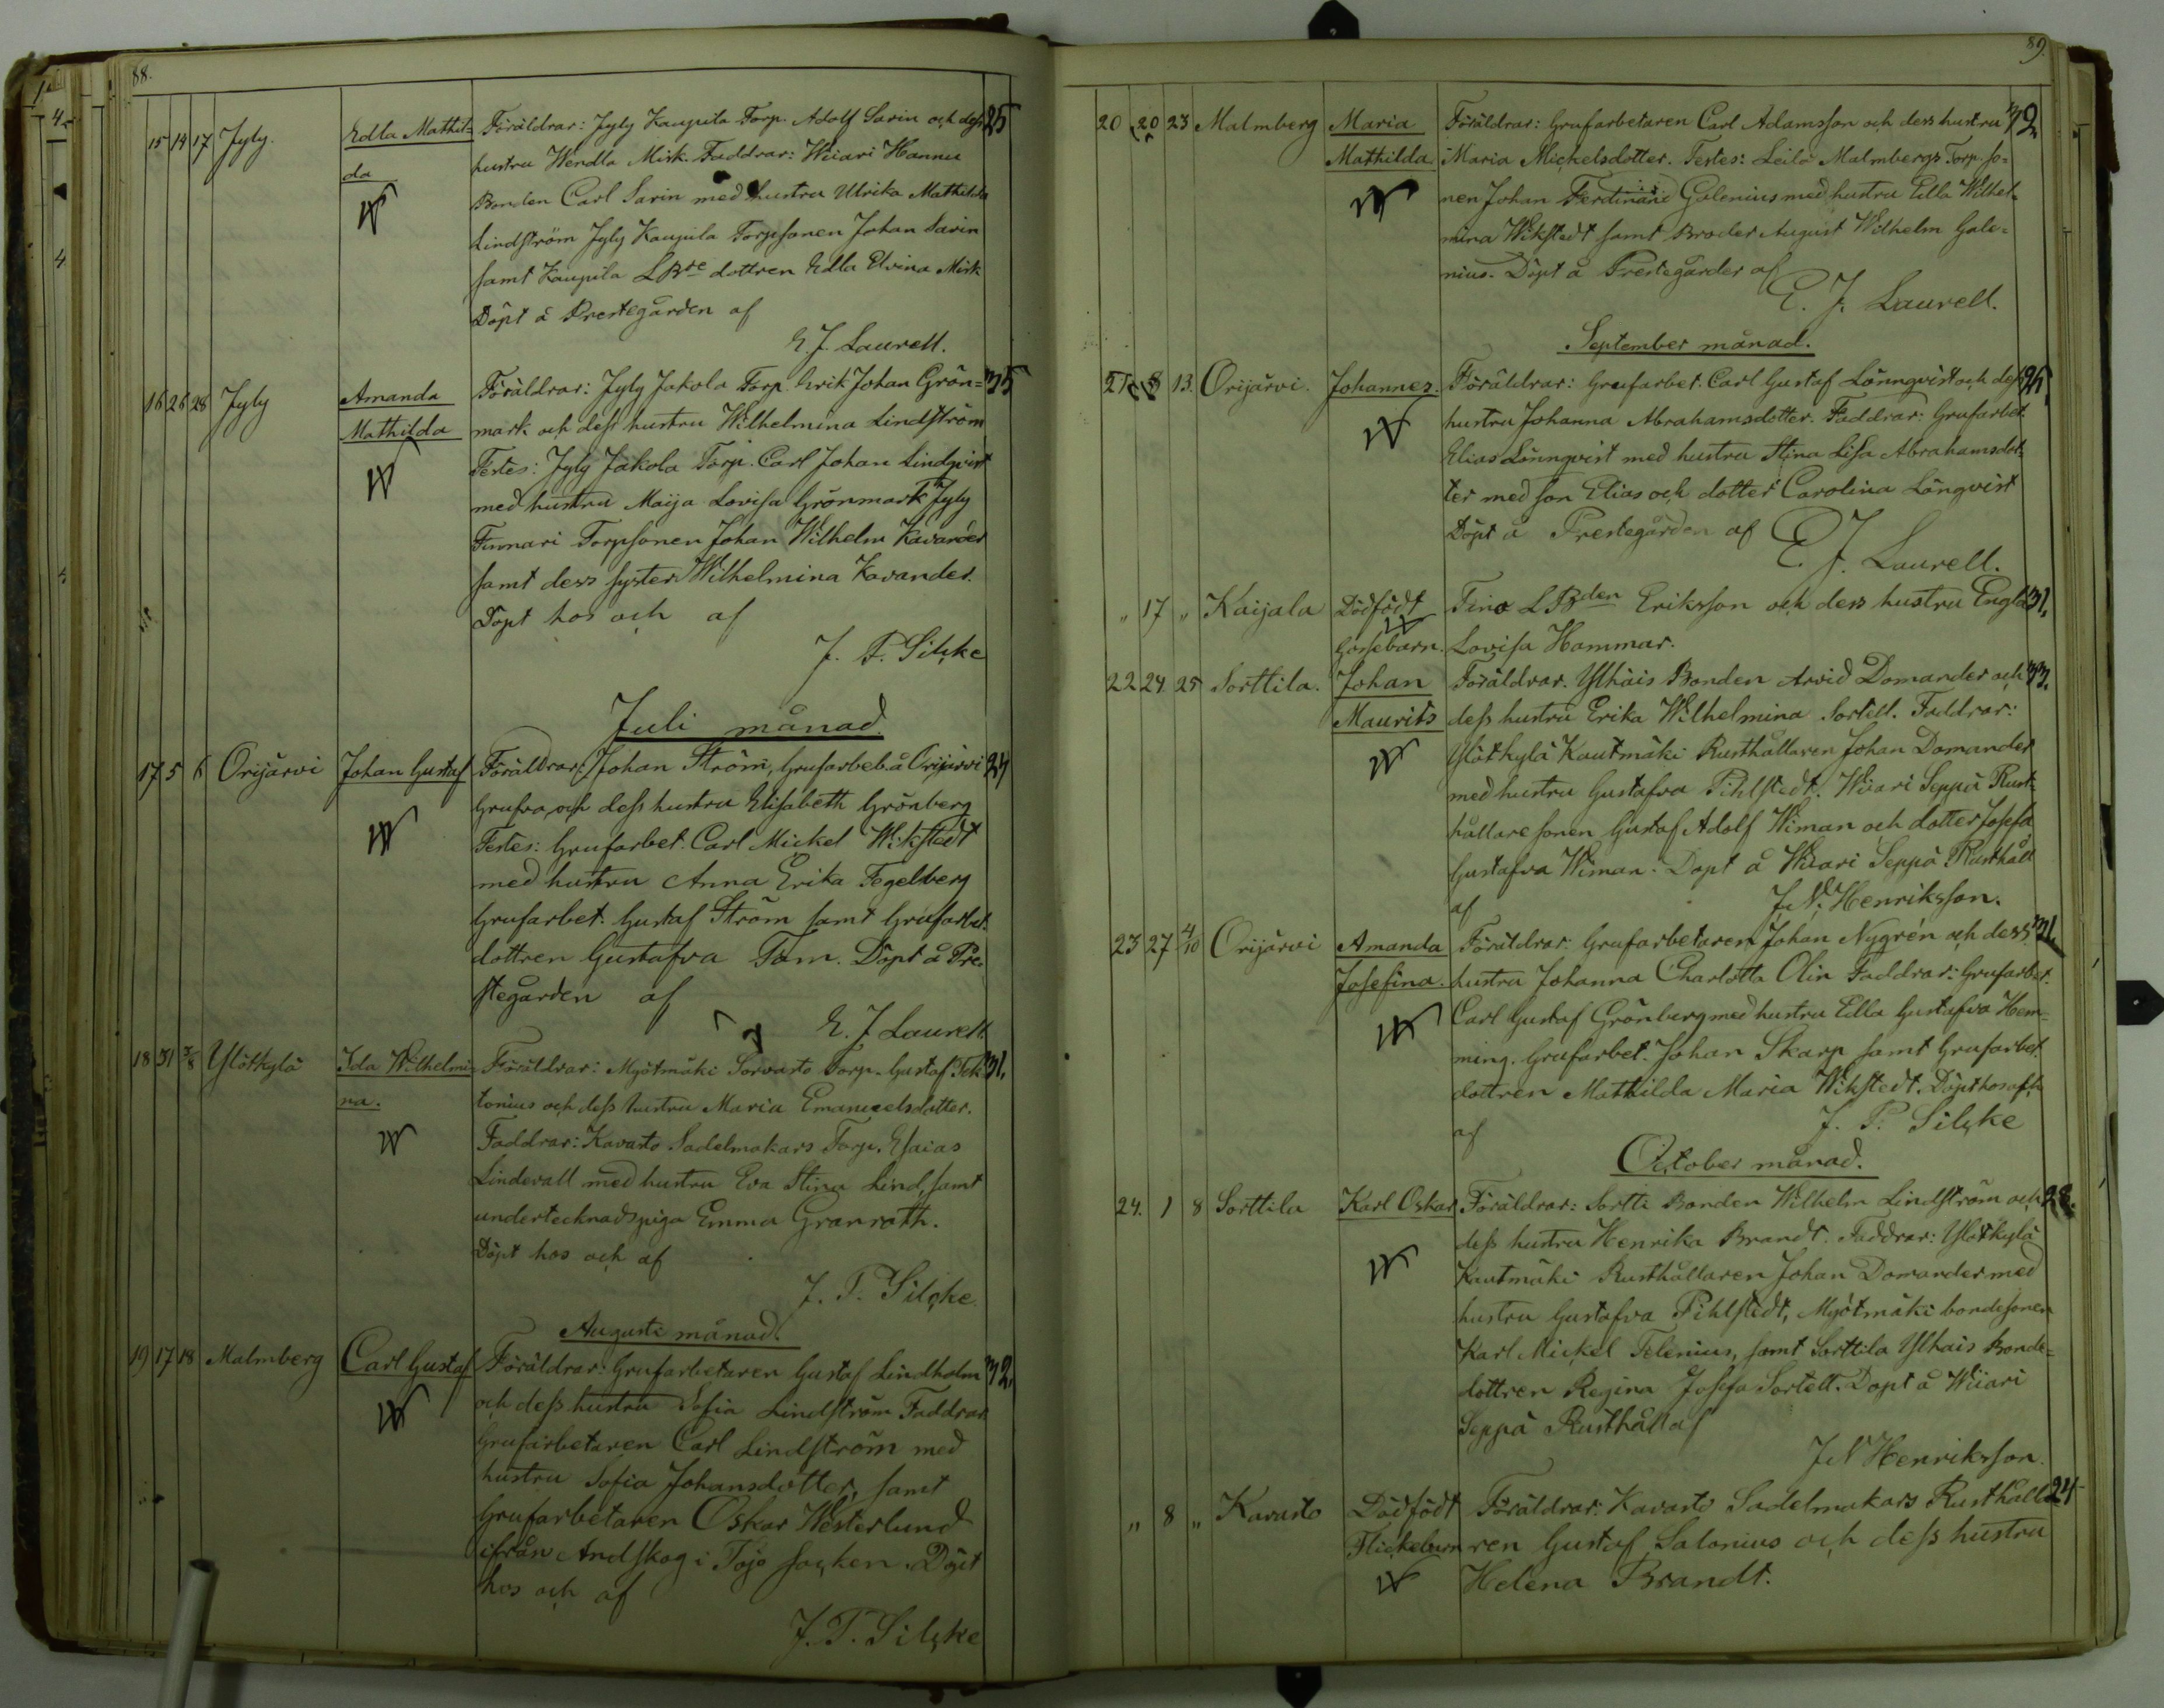 88.
15 14 17 Jyly. Edla Mathil- Föräldrar: Jyly Kaupila Torp. Adolf Sarin och dess 25
da hustru Wendla Mirk. Faddrar: Wiiari Hannu
Bonden Carl Sarin med hustru Ulrika Mathilda
Lindström Jyly Kaupila Torpsonen Johan Sarin
samt Kaupila LBde dottren Edla Elvina Mirk
Döpt å Prestegården af
E. J. Laurell.
16 26 28 Jyly Amanda Föräldrar: Jyly Jakola Torp. Erik Johan Grön= 35
Mathilda mark och dess hustru Wilhelmina Lindström
Testes: Jyly Jakola Torp. Carl Johan Lindqvist
med hustru Maija Lovisa Grönmark Jyly
Finnari Torpsonen Johan Wilhelm Kavander
samt dess syster Wilhelmina Kavander.
Döpt hos och af
J. T. Silcke
Juli månad.
17 5 6 Orijärvi Johan Gustaf Föräldrar: Johan Ström, Grufarbet. å Orijärvi 24
Grufva och dess hustru Elisabeth Grönberg
Testes: Grufarbet. Carl Mickel Wikstedt
med hustru Anna Erika Tegelberg
Grufarbet. Gustaf Ström samt Grufarbet.
dottren Gustafva Tam. Döpt å Pre-
stegården af
E. J Laurell.
18 31 3/8 Ylötkylä Ida Wilhelmi- Föräldrar: Myötmäki Sorvasto Torp. Gustaf Tek- 31.
na. tonius och dess hustru Maria Emanuelsdotter.
Faddrar: Kavasto Sadelmakars Torp. Esaias
Lindevall med hustru Eva Stina Lind, samt
undertecknads piga Emma Granroth.
Döpt hos och af
J. T. Silcke.
Augusti månad.
19 17 18 Malmberg Carl Gustaf Föräldrar: Grufarbetaren Gustaf Lindholm 32.
och dess hustru Sofia Lindström Faddrar.
Grufarbetaren Carl Lindström med
hustru Sofia Johansdotter, samt
Grufarbetaren Oskar Westerlund
ifrån Andskog i Tojo socken. Döpt
hos och af
J. T. Silcke
89.
20 20 23 Malmberg Maria Föräldrar: Grufarbetaren Carl Adamsson och dess hustru 32
Mathilda Maria Mickelsdotter. Testes: Leila Malmbergs Torp. so=
nen Johan Ferdinand Galenius med hustru Edla Wilhel-
mina Wikstedt samt Broder August Wilhelm Gale=
nius. Döpt å Prestegården af
E. J. Laurell.
September månad.
21 8 13. Orijärvi. Johannes. Föräldrar: Grufarbet. Carl Gustaf Lönnqvist och dess
hustru Johanna Abrahamsdotter. Faddrar: Grufarbet.
Elias Lönnqvist med hustru Stina Lisa Abrahamsdot-
ter med son Elias och dotter Carolina Lönqvist
Döpt å Prestegården af
E. J. Laurell.
" 17 " Kaijala Dödfödt Tino LBden Eriksson och dess hustru Engla 31.
Gossebarn. Lovisa Hammar.
22 24 25 Sorttila. Johan Föräldrar. Ylhäis Bonden Arvid Domander och 33.
Maurits dess hustru Erika Wilhelmina Sortell. Faddrar:
Ylötkylä Kautmäki Rusthållaren Johan Domander
med hustru Gustafva Pihlstedt. Wiiari Seppä Rust-
hållare sonen Gustaf Adolf Wiman och dotter Josefa
Gustafva Wiman. Döpt å Wiiari Seppä Rusthåll
af J. N. Henriksson.
23 27 4/10 Orijärvi Amanda Föräldrar: Grufarbetaren Johan Nygrén och dess 31.
Josefina. hustru Johanna Charlotta Olin Faddrar: Grufarbet.
Carl Gustaf Grönberg med hustru Edla Gustafva Hem=
ming. Grufarbet. Johan Skarp samt Grufarbet.
dottren Mathilda Maria Wikstedt. Döpt hos och
af J. T. Silcke
October månad.
24. 1 8 Sorttila Karl Oskar Föräldrar: Sortti Bonden Wilhelm Lindström och 28.
dess hustru Henrika Brandt. Faddrar: Ylötkylä
Kautmäki Rusthållaren Johan Domander med
hustru Gustafva Pihlstedt, Myötmäki bondesonen
Karl Mickel Telenius, samt Sorttila Ylhäis Bonde=
dottren Regina Josefa Sortell. Döpt å Wiiari
Seppä Rusthåll af
J N Henriksson.
" 8 " Kavasto Dödfödt Föräldrar: Kavasto Sadelmakars Rusthålla 24
Flickebarn ren Gustaf Salonius och dess hustru
Helena Brandt.